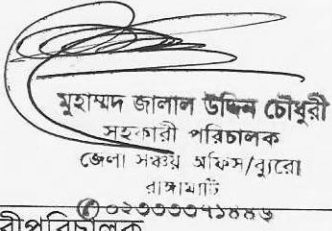 মুহাম্মদ জালাল উদ্দিন চৌধুরী
সহকারী পরিচালক
জেলা সঞ্চয় অফিস/ব্যুরো
রাঙ্গামাটি
০২৩৩৩৩৭১৪৪৬
রীপরিচালক